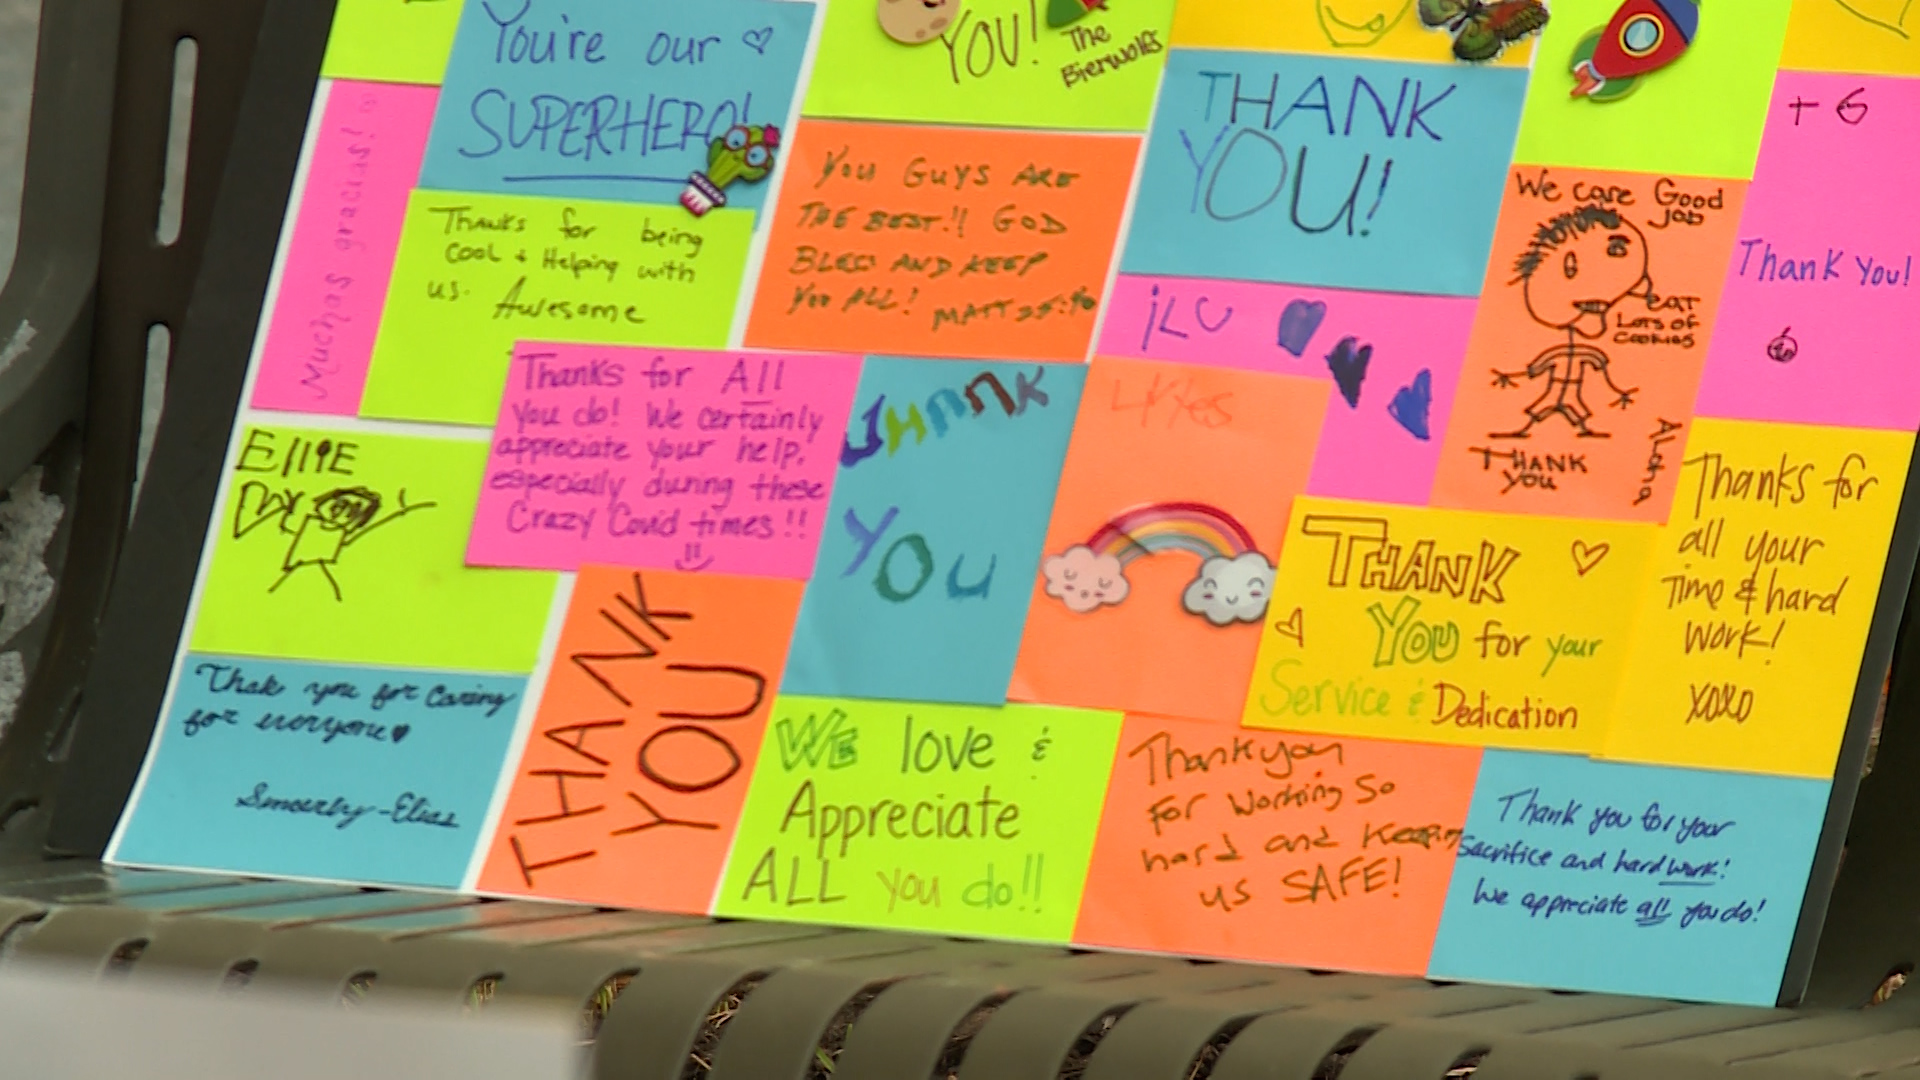 You're our
SUPERHERO!
YOU!
The
Bierwolfs
THANK
YOU!
+ G
Thank You!
Muchas gracias!
Thanks for being
Cool + Helping with
us. Awesome
You Guys ARE
THE BEST!! GOD
BLESS AND KEEP
YOU ALL! MATT 25:40
iLU
We care Good
Job
EAT
Lots of
Cookies
THANK
You
Alana
Ellie
Thanks for All
you do! We certainly
appreciate your help.
especially during these
Crazy Covid times!!
THANK
YOU
THANK
YOU for your
Service & Dedication
Thanks for
all your
Time & hard
work!
xoxo
Thak you for caring
for everyone
Sincerly -Elias
THANK
YOU
WE love &
Appreciate
ALL you do!!
Thank you
For Working So
hard and Keeping
us SAFE!
Thank you for your
Sacrifice and hard work!
We appreciate all you do!